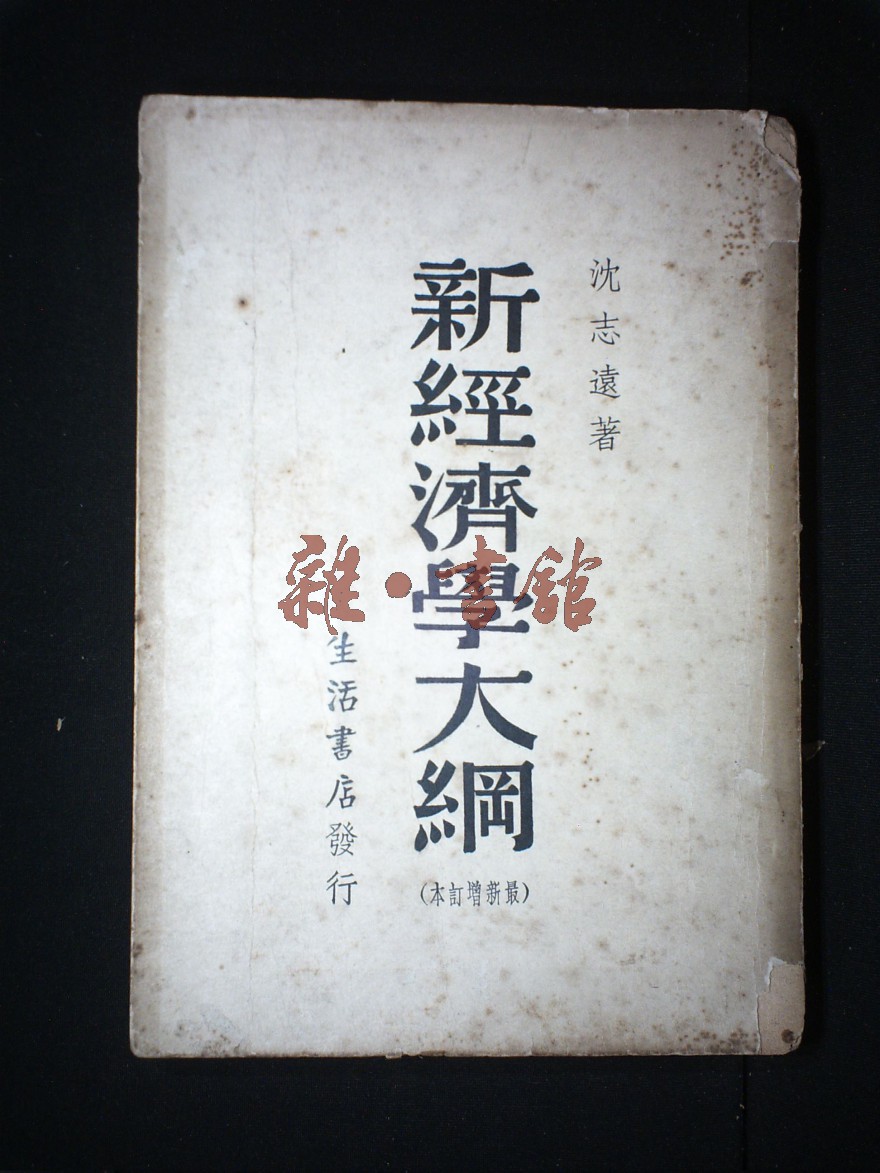 沈志遠著
新經濟學大綱
（最新增訂本）
生活書店發行
雜·書館